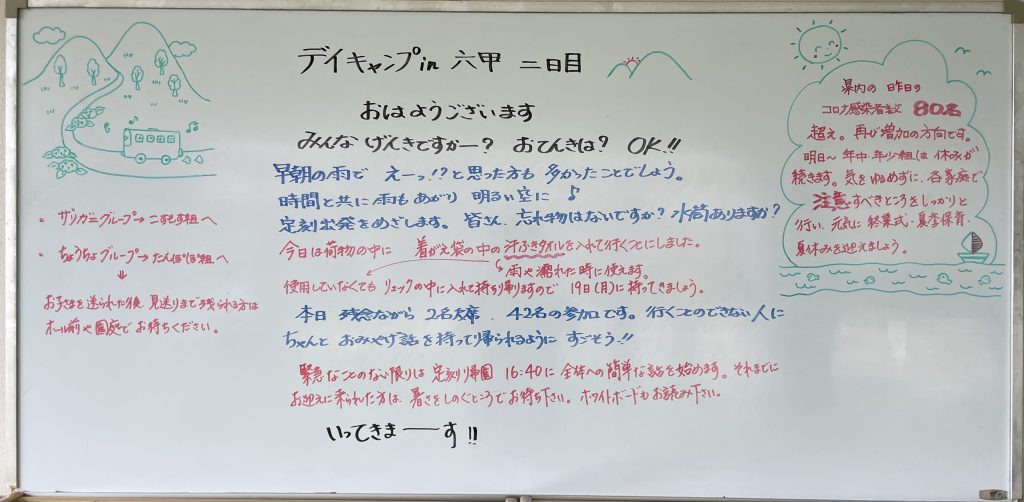 デイキャンプin 六甲 二日目
おはようございます
みんな げんきですかー? おてんきは? OK!!
早朝の雨で えーっ!?と思った方も 多かったことでしょう。
時間と共に雨もあがり 明るい空に♪
定刻出発をめざします。皆さん、忘れ物はないですか? 水筒ありますか?
今日は荷物の中に 着がえ袋の中の汗ふきタオルを入れて行くことにしました。
雨や濡れた時に使えます。
使用していなくても リュックの中に入れて持ち帰りますので 19日(月)に持ってきましょう。
本日 残念ながら 2名欠席. 42名の参加です。行くことのできない人に
ちゃんと おみやげ話を持って帰られるように すごそう!!
緊急なことのない限りは 定刻帰園 16:40に 全体への簡単な話を始めます。それまでに
お迎えに来られた方は、暑さをしのぐところでお待ち下さい。ホワイトボードもお読み下さい。
いってきまーーす!!
・ザリガニグループ→こすもす組へ
・ちょうちょグループ→たんぽぽ組へ
お子さまを送られた後、見送りまで残られる方は
ホール前や園庭でお待ちください。
県内の 昨日の
コロナ感染者数 80名
超え。再び増加の方向です。
明日〜 年中・年少組は 休みが
続きます。気をゆるめずに、各家庭で
注意すべきところをしっかりと
行い、元気に 終業式・夏季保育・
夏休みを迎えましょう。